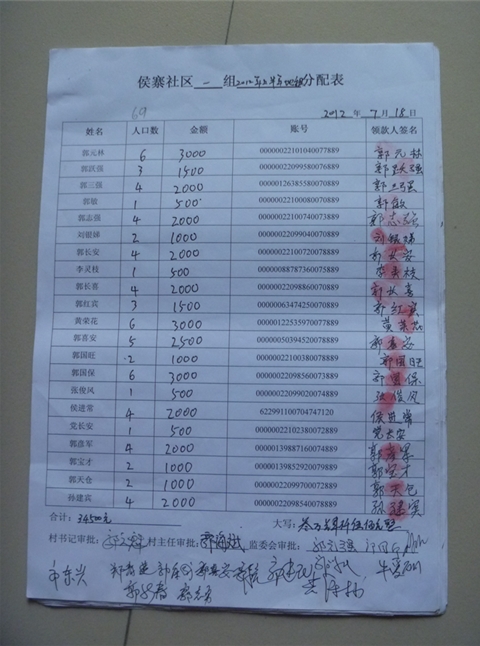 侯寨社区 一 组2012年上半年地租分配表
69
2012 年 7 月 18 日
姓名 人口数 金额 账号 领款人签名
郭元林 6 3000 00000022101040077889 郭元林
郭跃强 3 1500 00000022099580076889 郭跃强
郭三强 4 2000 00000126385580070889 郭三强
郭敏 1 500 00000022100080070889 郭敏
郭志强 4 2000 00000022100740073889 郭志强
刘银娣 2 1000 00000022099040070889 刘银娣
郭长安 4 2000 00000022100720078889 郭长安
李灵枝 1 500 00000088787360075889 李灵枝
郭长喜 4 2000 00000022098860070889 郭长喜
郭红宾 3 1500 00000063474250070889 郭红宾
黄荣花 6 3000 00000122535970077889 黄荣花
郭喜安 5 2500 00000050394520078889 郭喜安
郭国旺 2 1000 00000022100380078889 郭国旺
郭国保 6 3000 00000022098560073889 郭国保
张俊风 1 500 00000022099020074889 张俊风
侯进常 4 2000 622991100704747120 侯进常
党长安 1 500 00000022102380072889 党长安
郭彦军 4 2000 00000139887160074889 郭彦军
郭宝才 2 1000 00000139852920079889 郭宝才
郭天仓 2 1000 00000022099700072889 郭天仓
孙建宾 4 2000 00000022098540078889 孙建宾
合计：34500元 大写：叁万肆仟伍佰元整
村书记审批： 村主任审批： 监委会审批：